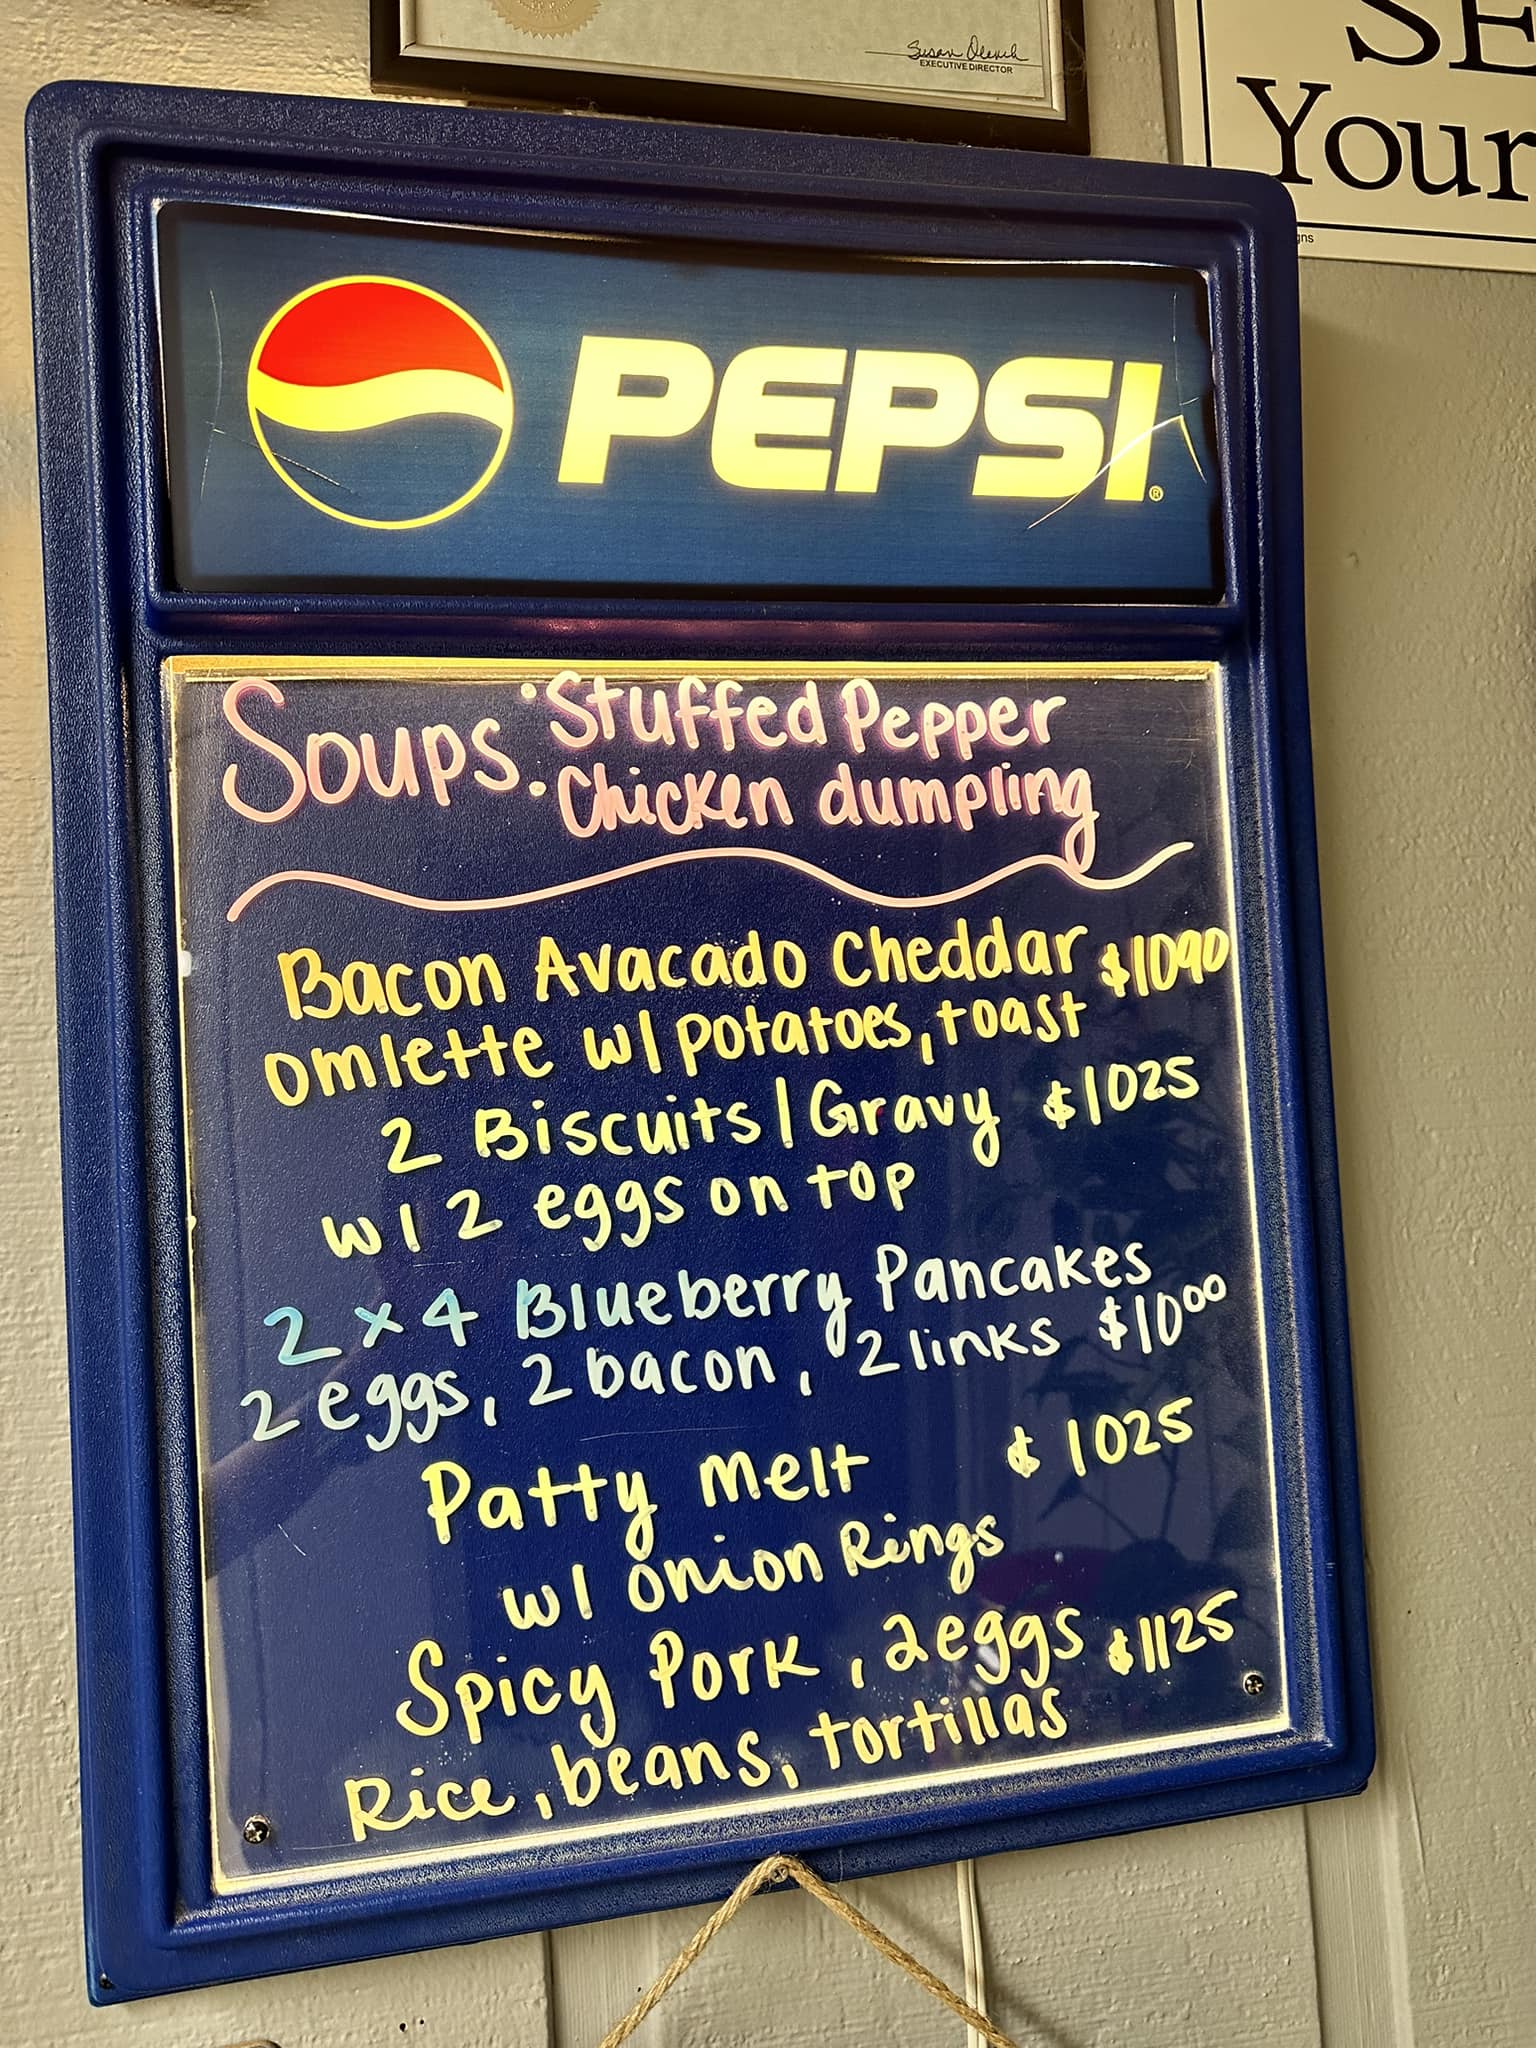 Susan
EXECUTIVE DIRECTOR
SE
Your
gns
PEPSI®
Soups: ·Stuffed Pepper
·Chicken dumpling
Bacon Avacado Cheddar $1090
omlette w/ potatoes, toast
2 Biscuits/Gravy $1025
w/ 2 eggs on top
2 x 4 Blueberry Pancakes
2 eggs, 2 bacon, 2 links $10⁰⁰
Patty melt $1025
w/ onion Rings
Spicy Pork, 2 eggs $1125
Rice, beans, tortillas